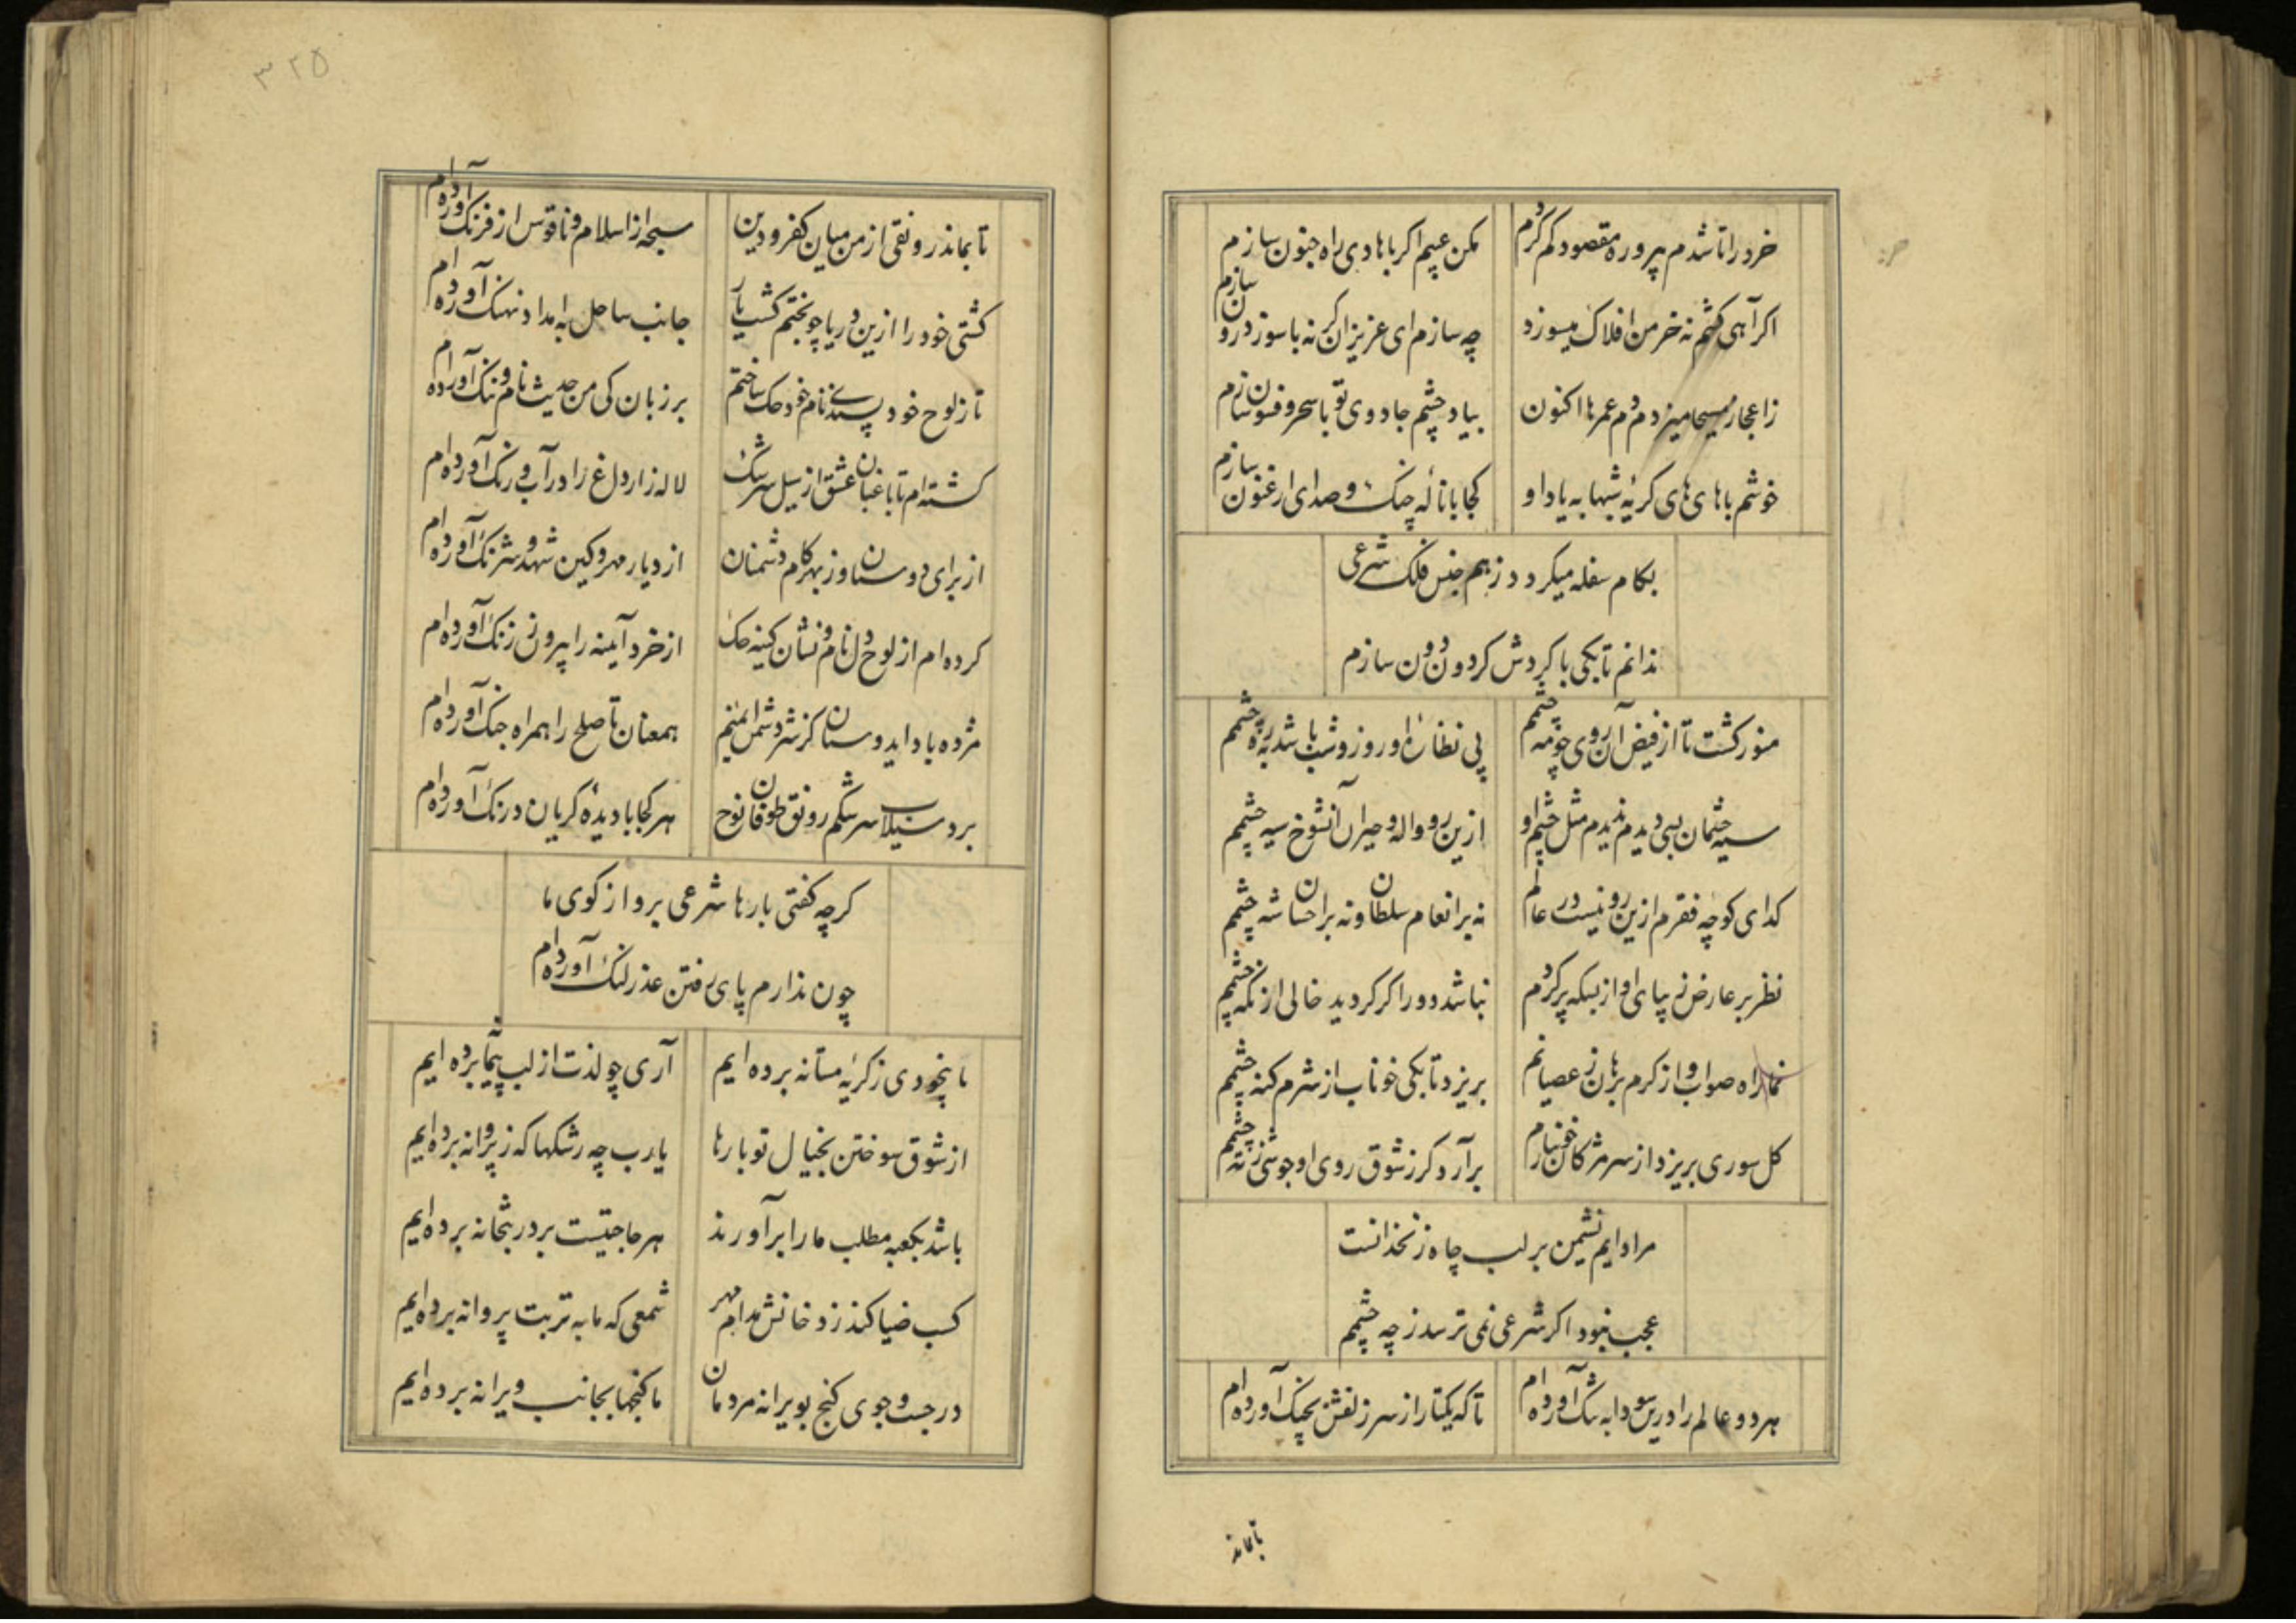 خرد را تا شدم پیرو ره مقصود کم کردم
مکن عیبم اکر با هادی راه جنون سازم
اکر آهی کشم نه خرمن افلاک میسوزد
چه سازم ای عزیزان کر نه با سوز درون سازم
ز اعجاز مسیحا میزدم دم عمرها اکنون
بیاد چشم جادوی تو با سحر و فسون سازم
خوشم با های های کریه شبها به یاد او
کجا با نالهٔ چنک و صدای ارغنون سازم
بکام سفله میکردد ز هم جنس فلک شرعی
ندانم تا بکی با کردش کردون دون سازم
منور کشت تا از فیض آن روی چو مه چشمم
پی نظارهٔ او روز و شب باشد به ره چشمم
سیه چشمان بسی دیدم ندیدم مثل چشم او
ازین رو واله و حیران آنشوخ سیه چشمم
کدای کوچه فقرم ازین رو نیست در عالم
نه بر انعام سلطان و نه بر احسان شه چشمم
نظر بر عارض زیبای او از بسکه پر کردم
نباشد دور اکر کردید خالی از نکه چشمم
نما راه صواب و از کرم برهان ز عصیانم
بریزد تا بکی خوناب از شرم کنه چشمم
کل سوری بریزد از سر مژکان خونبارم
برآرد کر ز شوق روی او جوشی ز ته چشمم
مرا دایم نشیمن بر لب چاه زنخدانست
عجب نبود اکر شرعی نمی ترسد ز چه چشمم
هر دو عالم را درین سودا به تنک آورده ام
تا که یکتار از سر زلفش بچنک آورده ام
تا بماند
۳۲۵
تا بماند رونقی از من میان کفر و دین
سبحه از اسلام و ناقوس از فرنک آورده ام
کشتی خود را ازین دریا چو بختم کشت یار
جانب ساحل به امداد نهنک آورده ام
تا ز لوح خود پسندی نام خود حک ساختم
بر زبان کی من حدیث نام و ننک آورده ام
کشته ام تا باغبان عشق از سیل سرشک
لاله زار داغ را در آب و رنک آورده ام
از برای دوستان وز بهر کام دشمنان
از دیار مهر و کین شهد و شرنک آورده ام
کرده ام از لوح دل نام و نشان کینه حک
از خرد آیینه را بیرون ز زنک آورده ام
مژده باد ایدوستان کز شر دشمن ایمنم
همعنان تا صلح را همراه جنک آورده ام
برد سیلاب سرشکم رونق طوفان نوح
هر کجا با دیدهٔ کریان درنک آورده ام
کرچه کفتی بارها شرعی برو از کوی ما
چون ندارم پای رفتن عذر لنک آورده ام
ما بیخودی ز کریهٔ مستانه برده ایم
از شوق سوختن بخیال تو بارها
یارب چه رشکها که ز پروانه برده ایم
باشد بکعبه مطلب ما را برآورند
هر حاجتیست بر در بتخانه برده ایم
کسب ضیا کند ز دخانش مدام مهر
شمعی که ما به تربت پروانه برده ایم
در جست و جوی کنج بویرانه مردمان
ما کنجها بجانب ویرانه برده ایم